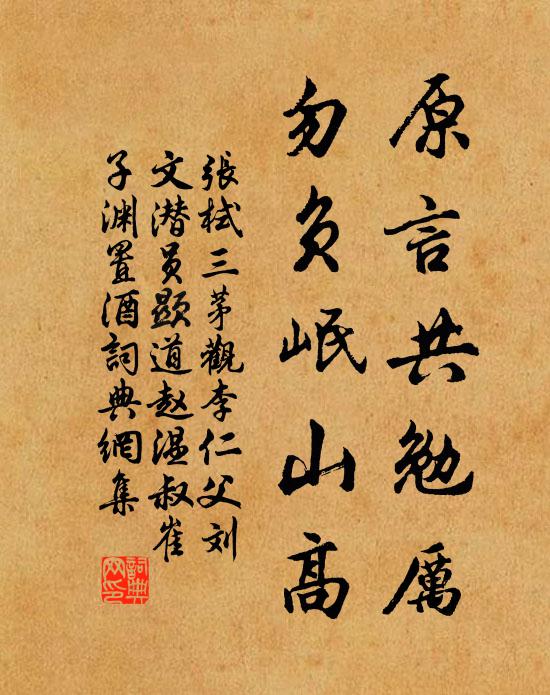 原言共勉厲
勿負岷山高
張栻三茅觀李仁父刘
文潜員顯道赵温叔崔
子渊置酒詞典網集
詞典
网印